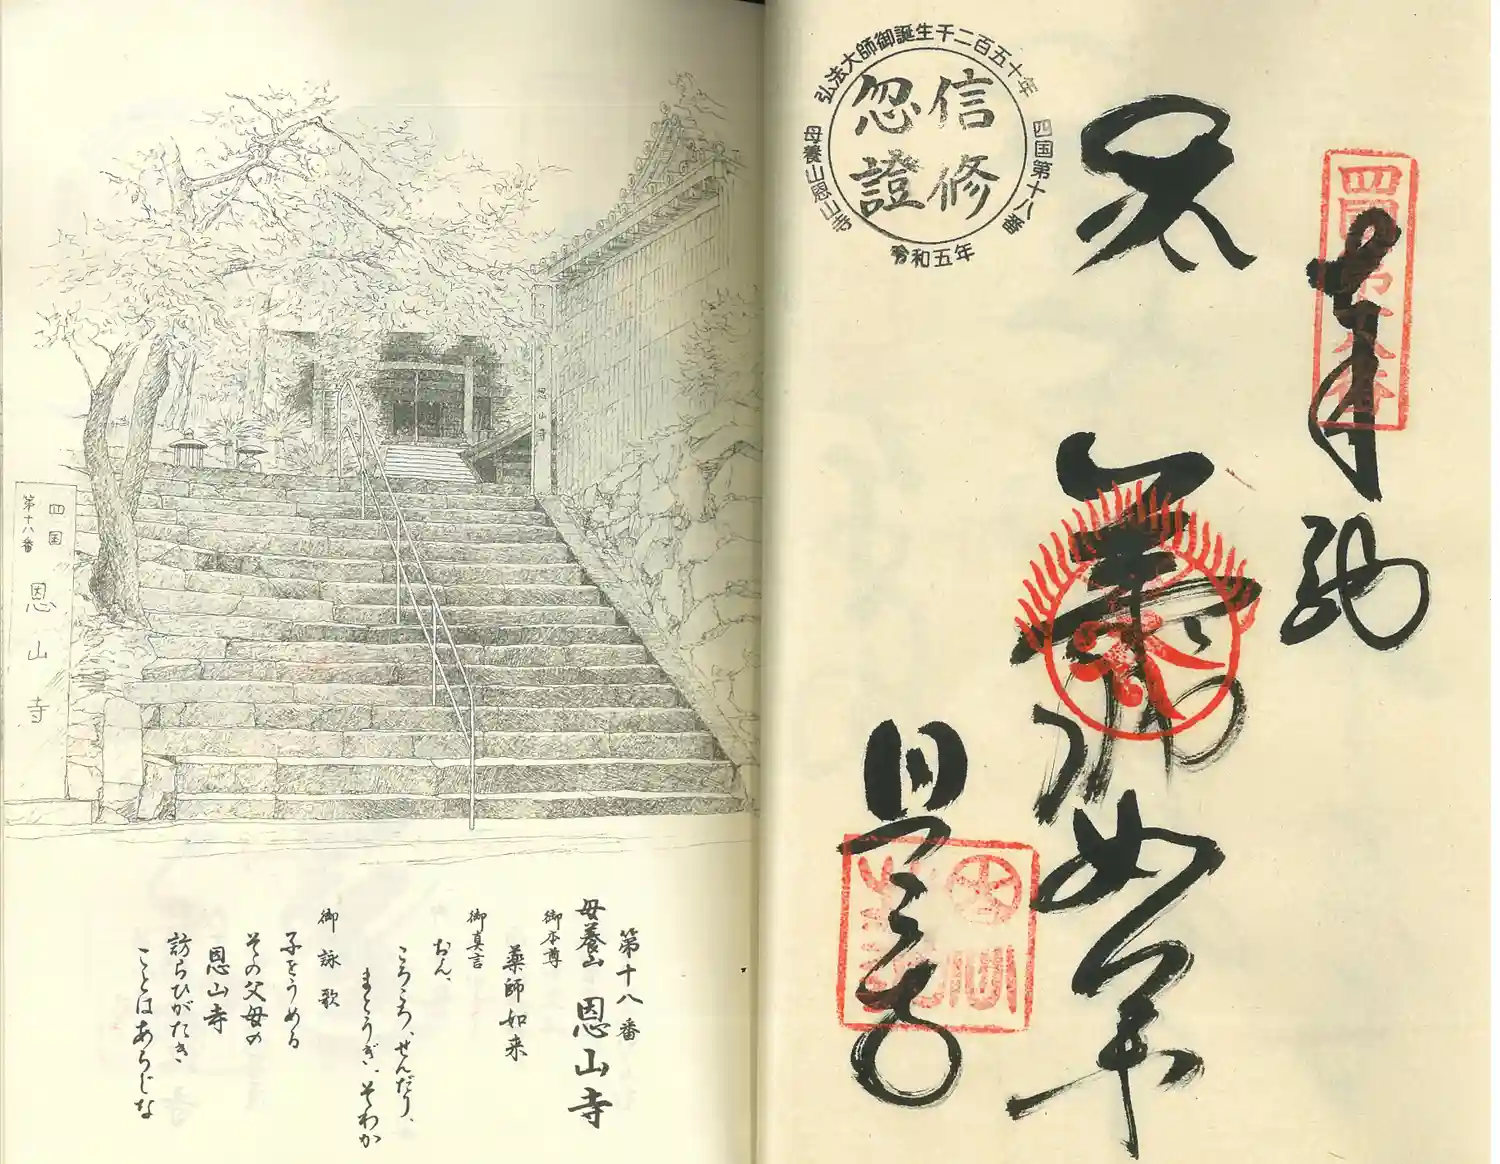 弘法大師御誕生千二百五十年
四国第十八番
母養山恩山寺
令和五年
信修
忽證
四国第十八番
奉
薬師如来
恩山寺
四国
第十八番
恩山寺
恩山寺
第十八番
母養山 恩山寺
御本尊
薬師如来
御真言
おん、
ころころ、せんだり、
まとうぎ、そわか
御詠歌
子をうめる
その父母の
恩山寺
訪らひがたき
ことはあらじな